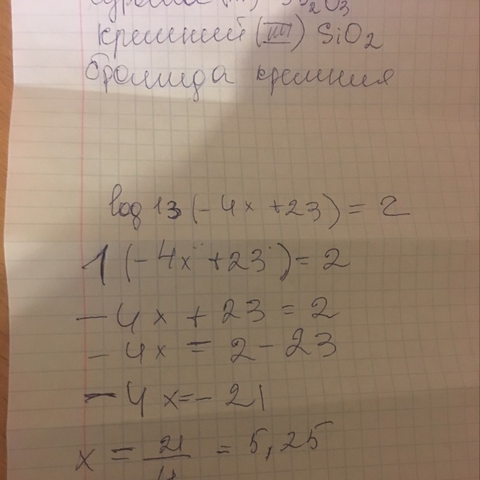 кремний (III) SiO2
бромида кремния
log 13 (-4x + 23) = 2
1 (-4x + 23) = 2
-4x + 23 = 2
-4x = 2 - 23
-4x = -21
x = 21/4 = 5,25